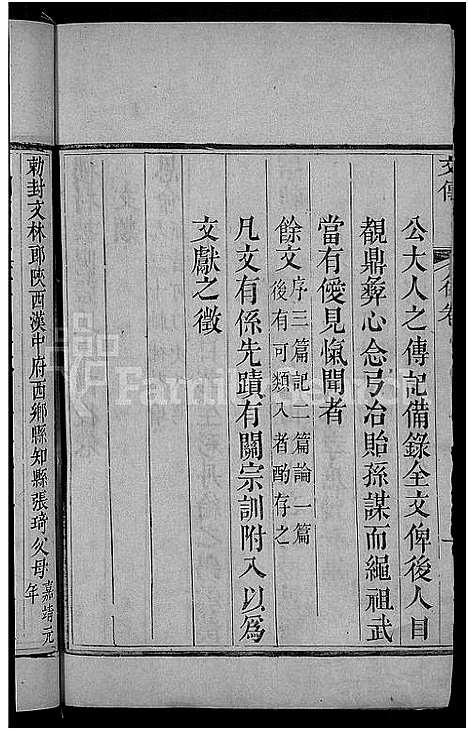 公大人之傳記備錄全文俾後人目
覩鼎彝心念弓冶貽孫謀而繩祖武
當有僾見愾聞者
餘文 序三篇記二篇論一篇
後有可類入者酌存之
凡文有係先蹟有關宗訓附入以爲
文獻之徵
勅封文林郎陝西漢中府西鄉縣知縣張琦父母 嘉靖元
年